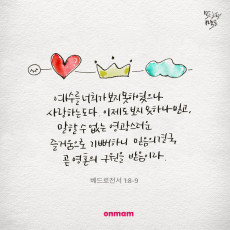 예수를 너희가 보지 못하였으나
사랑하는도다. 이제도 보지 못하나 믿고,
말할 수 없는 영광스러운
즐거움으로 기뻐하니 믿음의 결국,
곧 영혼의 구원을 받음이라.
베드로전서 1:8-9
onmam